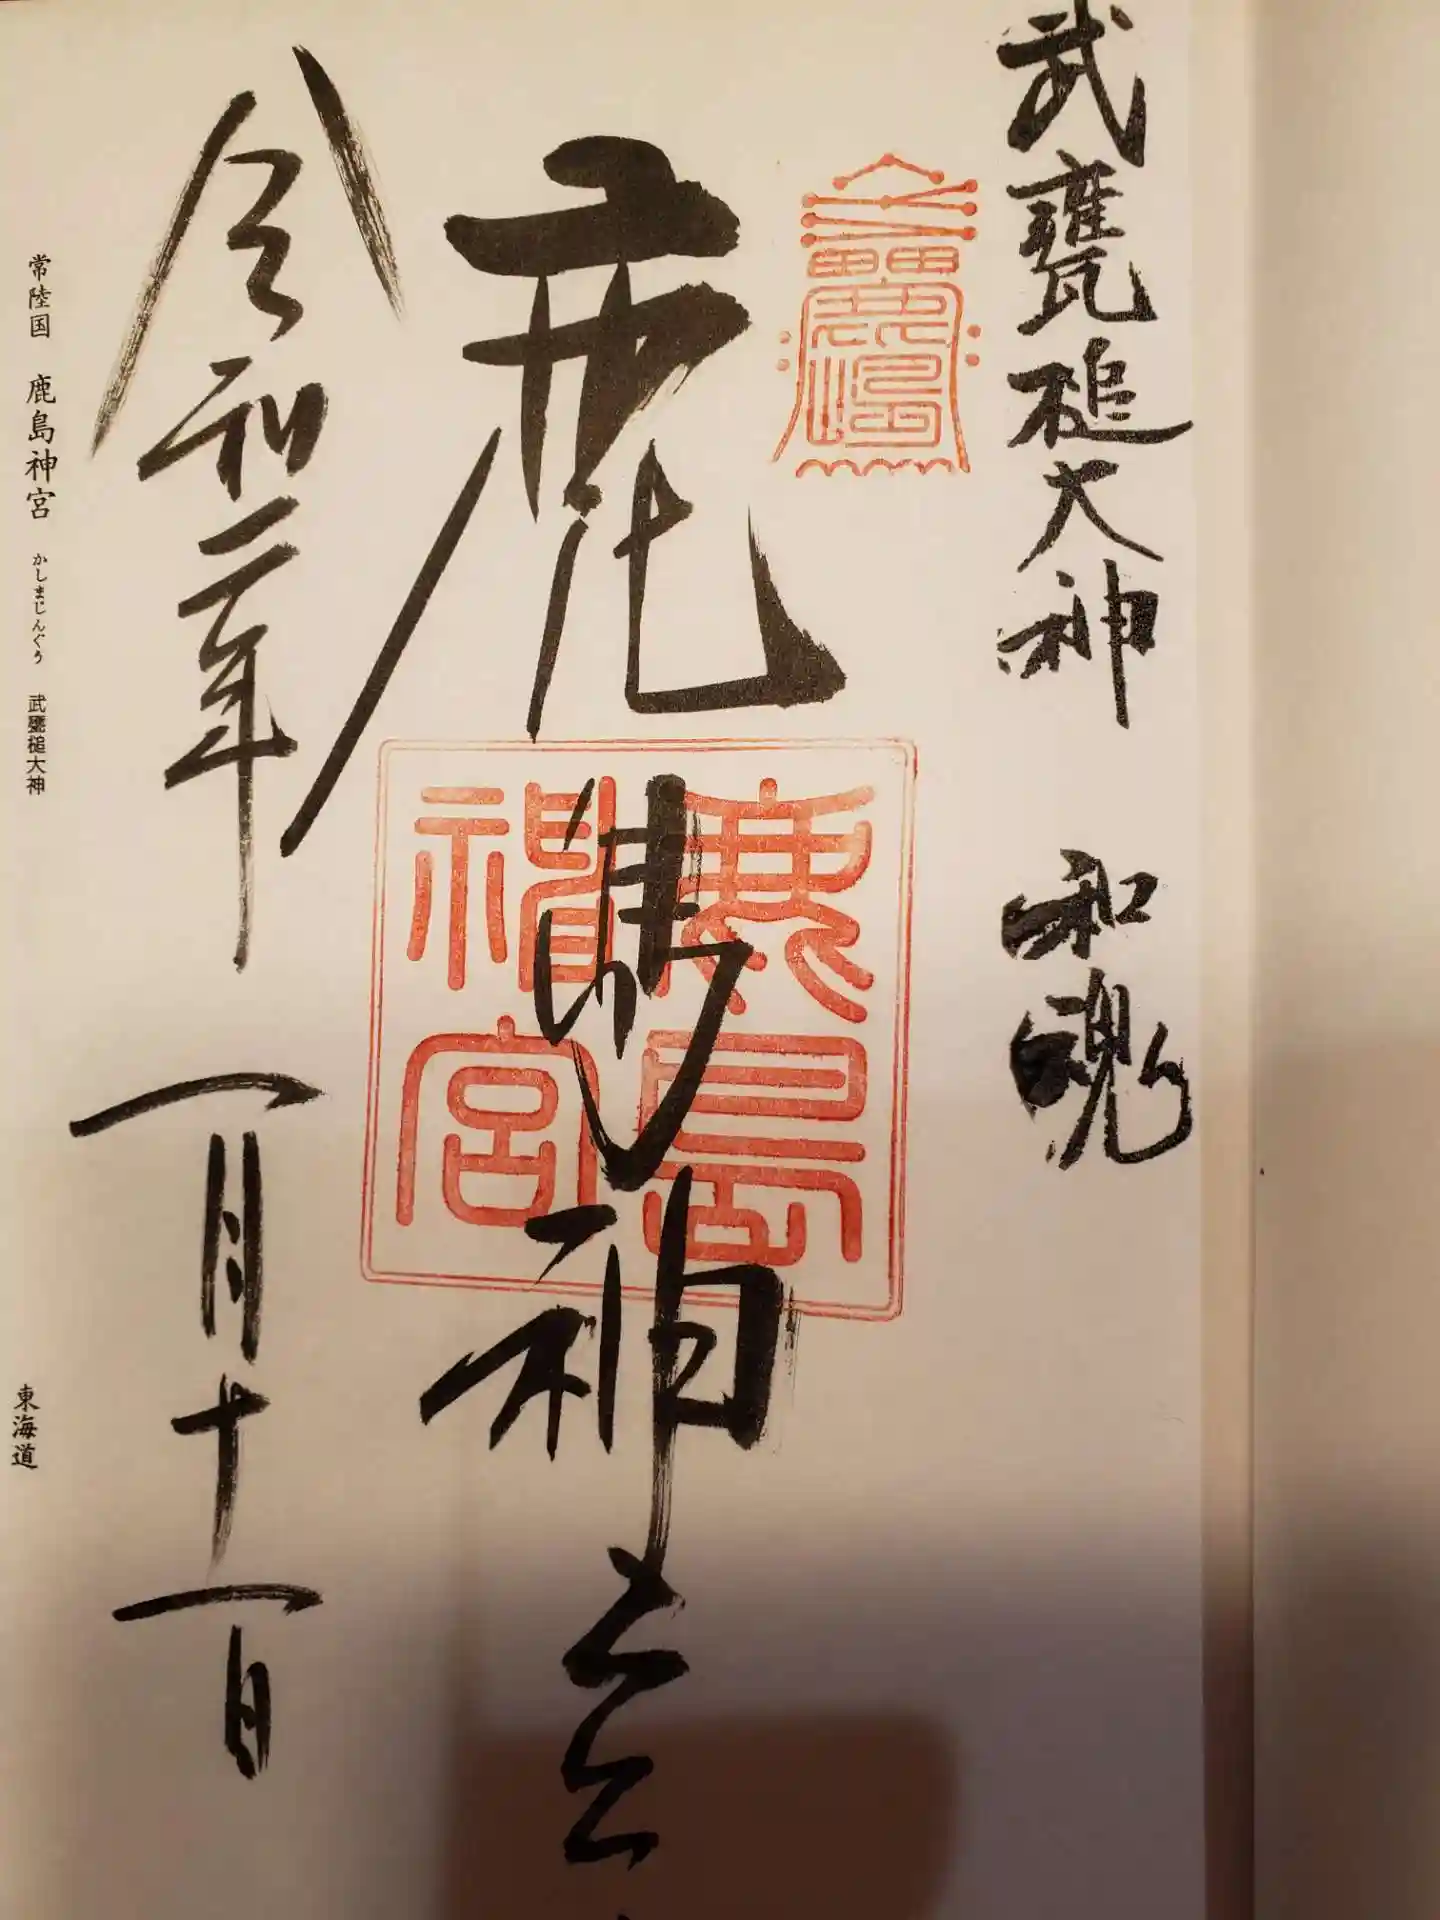 武甕槌大神 和魂
鹿島神宮
鹿島
神宮
令和二年 一月十一日
常陸国 鹿島神宮 かしまじんぐう 武甕槌大神
東海道